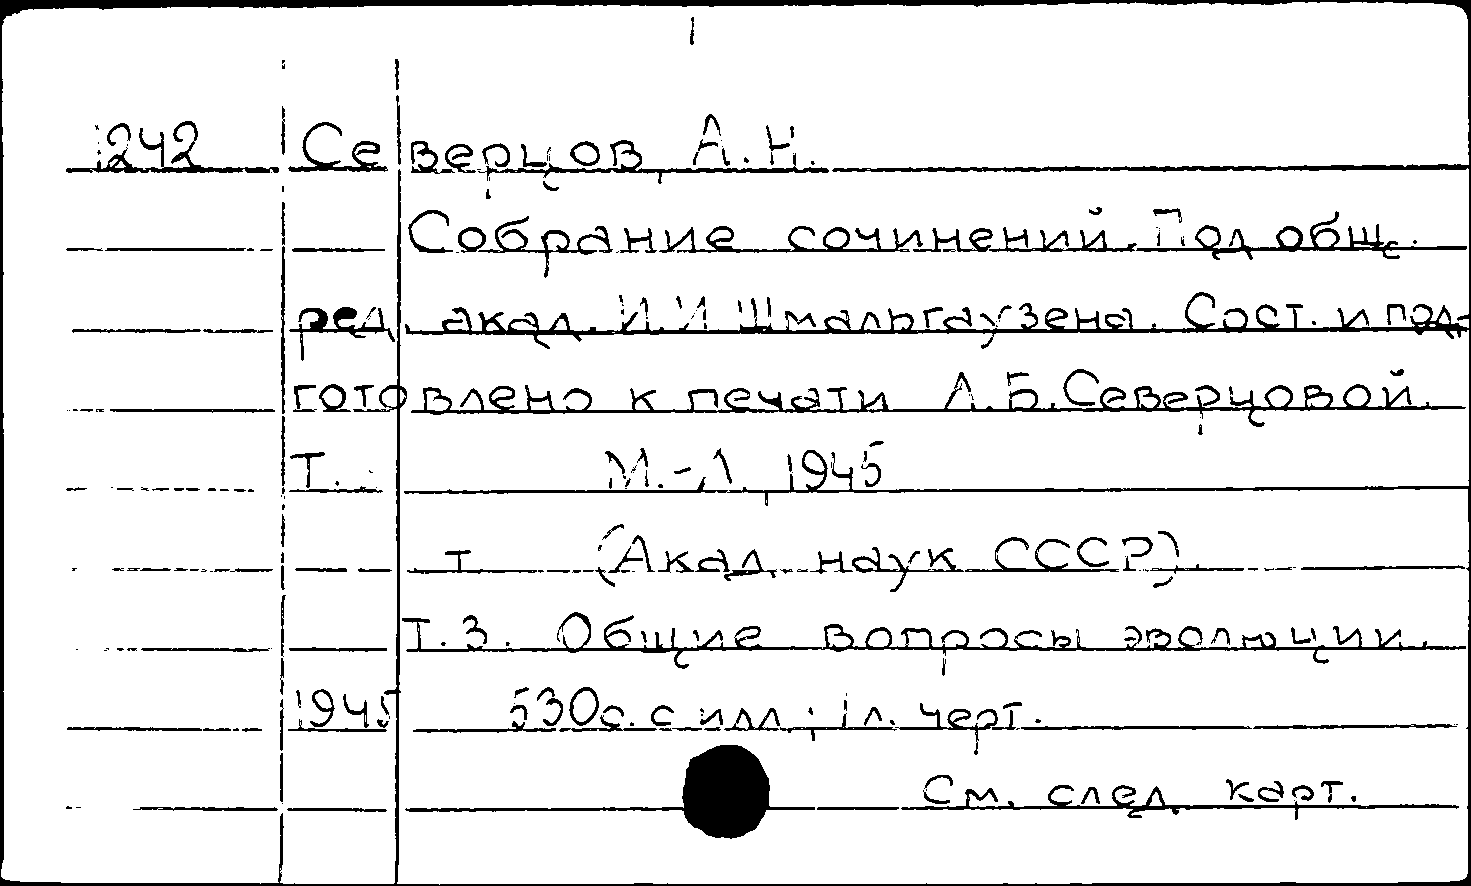 1242 Северцов, А. Н.
Собрание сочинений. Под общ.
ред. акад. И. И Шмальгаузена. Сост. и под-
готовлено к печати Л. Б. Северцовой.
Т. М.-Л., 1945
т (Акад. наук СССР).
Т. 3. Общие вопросы эволюции.
1945 530с. с илл.; 1 л. черт.
См. след. карт.